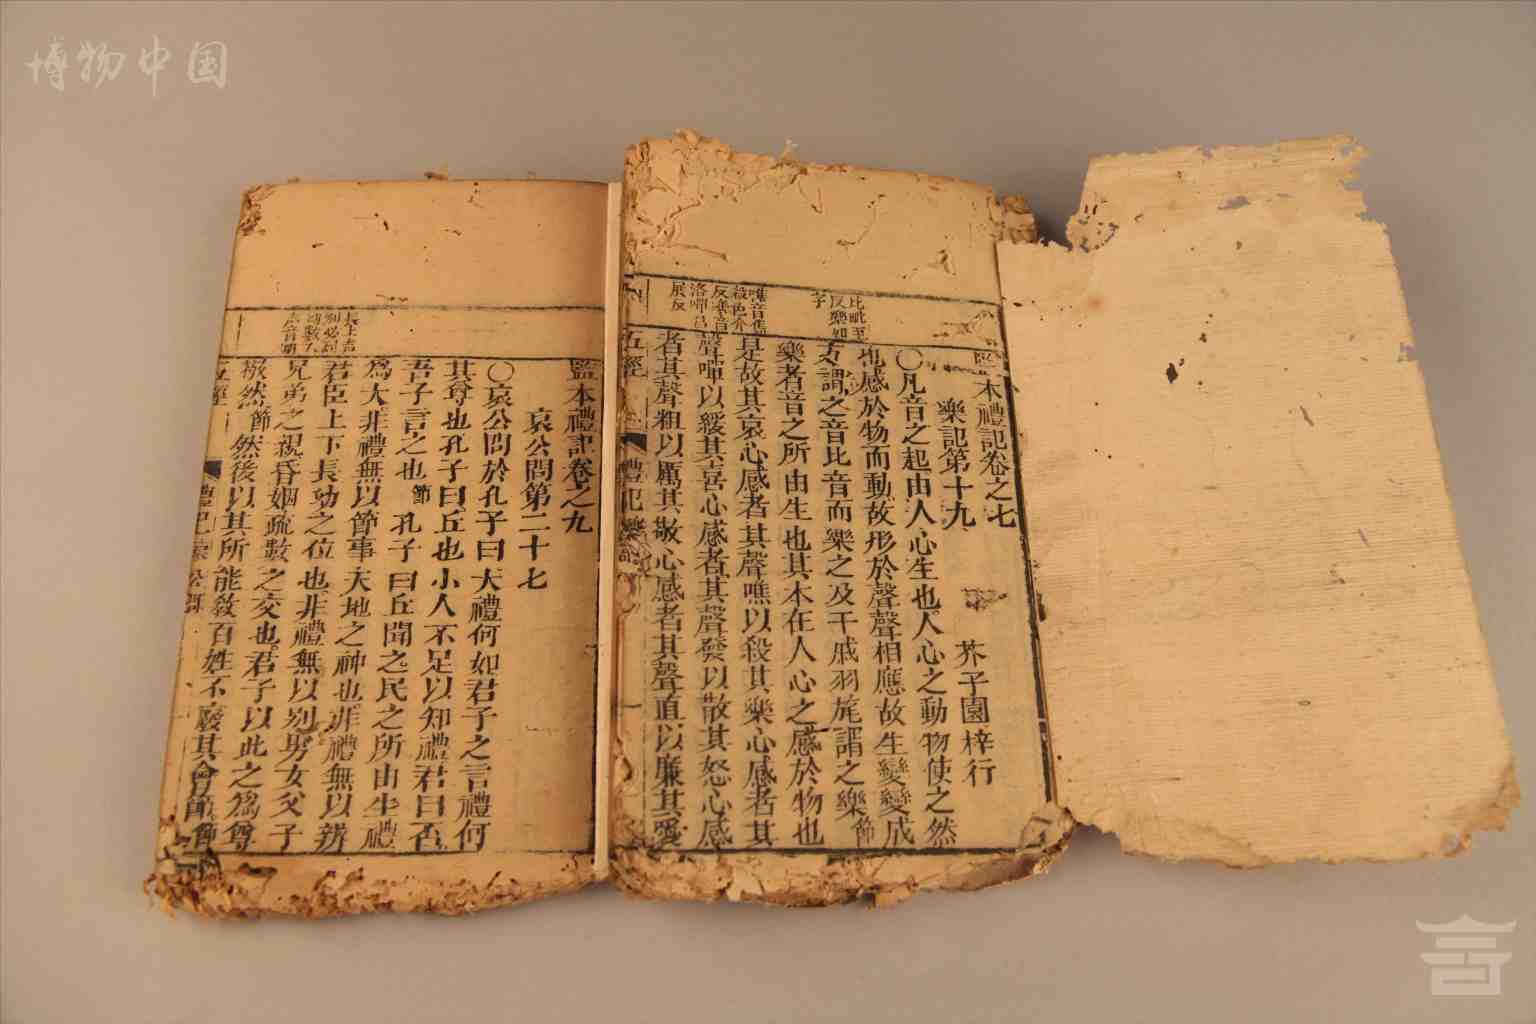 博物中国
監本禮記卷之七
樂記第十九
芥子園梓行
〇凡音之起由人心生也人心之動物使之然
也感於物而動故形於聲聲相應故生變變成
方謂之音比音而樂之及干戚羽旄謂之樂節
樂者音之所由生也其本在人心之感於物也
是故其哀心感者其聲噍以殺其樂心感者其
聲嘽以緩其喜心感者其聲發以散其怒心感
者其聲粗以厲其敬心感者其聲直以廉其愛
比毗至
反樂如
字
噍音焦
殺色介
反嘽昌
展反
五經
禮記樂記
監本禮記卷之九
哀公問第二十七
〇哀公問於孔子曰大禮何如君子之言禮何
其尊也孔子曰丘也小人不足以知禮君曰否
吾子言之也節孔子曰丘聞之民之所由生禮
爲大非禮無以節事天地之神也非禮無以辨
君臣上下長幼之位也非禮無以別男女父子
兄弟之親昏姻疏數之交也君子以此之爲尊
敬然節然後以其所能敎百姓不廢其會節節
長上吉
五經
禮記